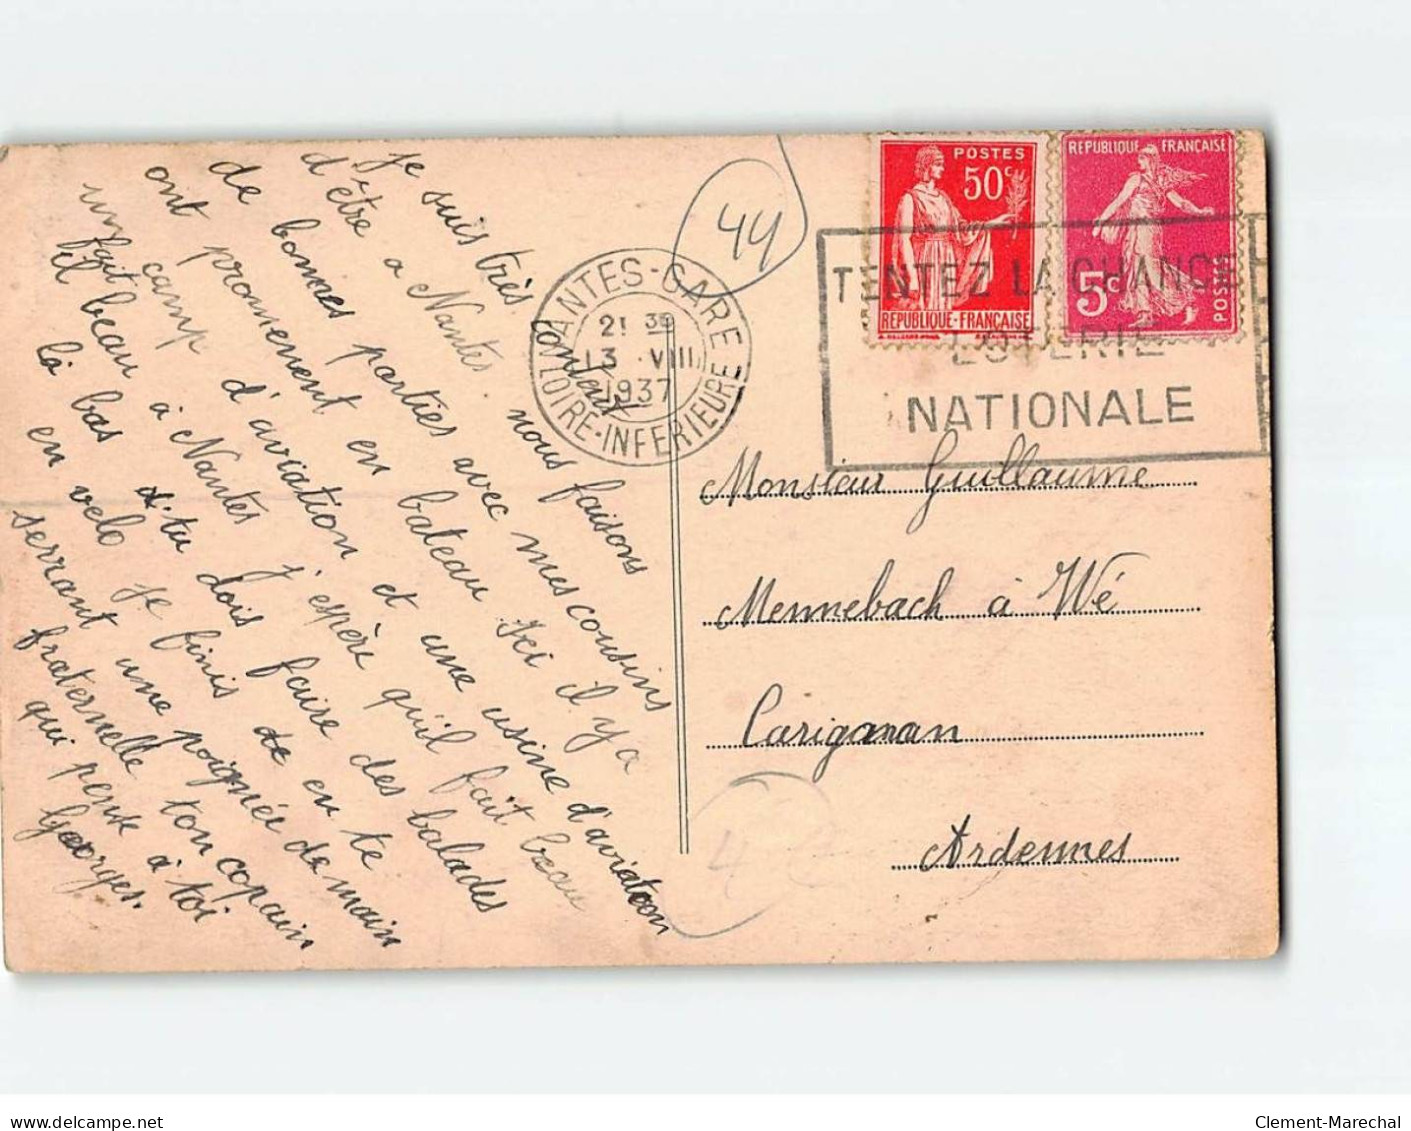 Je suis très content
d'être a Nantes nous faisons
de bonnes parties avec mes cousins
ont promement en bateau Ici il y a
un camp d'aviation et une usine d'aviation
il fait beau à Nantes j'espère qu'il fait beau
là bas tu dois faire des balades
en velo je finis en te
serrant une poignée de main
fraternelle ton copain
qui pense à toi
Georges.
44
NANTES-GARE
21 30
13 VIII
1937
LOIRE-INFERIEURE
POSTES
50c
REPUBLIQUE-FRANÇAISE
REPUBLIQUE FRANÇAISE
5c
POSTES
TENTEZ LA CHANCE
LOTERIE
NATIONALE
Monsieur Guillaume
Mennebach à Wé
Carignan
Ardennes
4
www.delcampe.net
Clement-Marechal